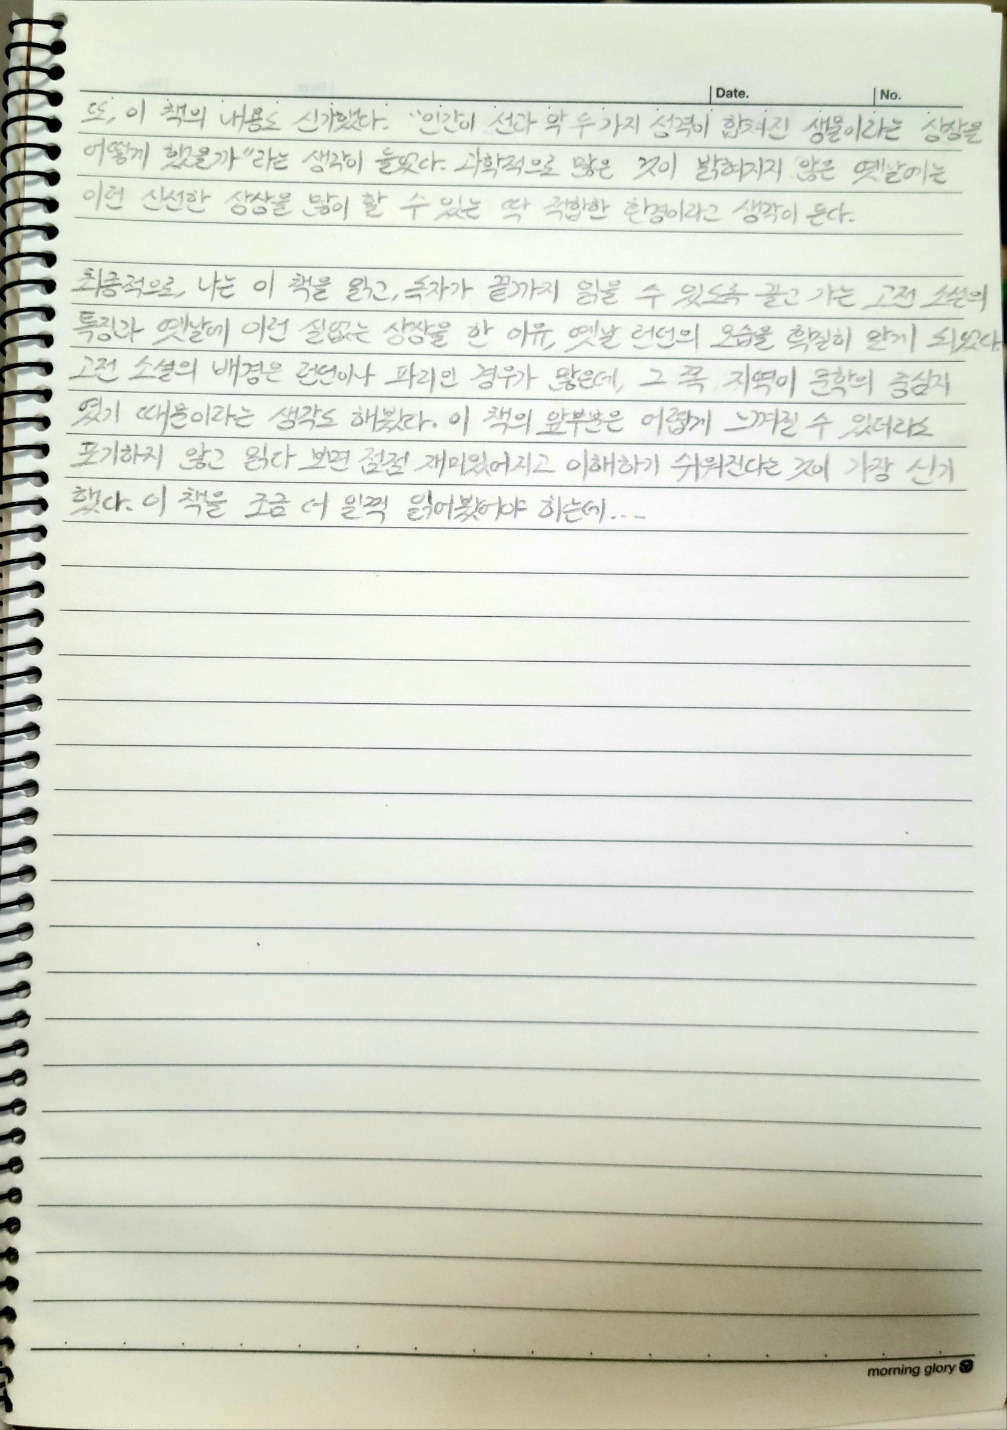 Date.
No.
또, 이 책의 내용도 신기했다. "인간이 선과 악 두 가지 성격이 합쳐진 생물이라는 상상을
어떻게 했을까"라는 생각이 들었다. 과학적으로 많은 것이 밝혀지지 않은 옛날에는
이런 신선한 상상을 많이 할 수 있는 딱 적합한 환경이라고 생각이 든다.
최종적으로, 나는 이 책을 읽고, 독자가 끝까지 읽을 수 있도록 끌고 가는 고전 소설의
특징과 옛날에 이런 실없는 상상을 한 이유, 옛날 런던의 모습을 확실히 알게 되었다.
고전 소설의 배경은 런던이나 파리인 경우가 많은데, 그 쪽 지역이 문학의 중심지
였기 때문이라는 생각도 해봤다. 이 책의 앞부분은 어렵게 느껴질 수 있더라도
포기하지 않고 읽다 보면 점점 재미있어지고 이해하기 쉬워진다는 것이 가장 신기
했다. 이 책을 조금 더 일찍 읽어봤어야 하는데...
morning glory